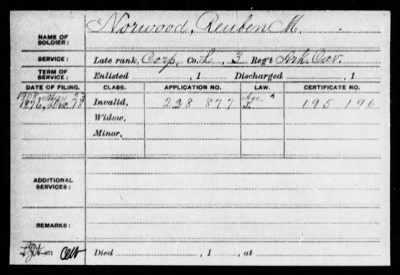 NAME OF SOLDIER: Norwood, Reuben M.
SERVICE: Late rank, Corp, Co. L, 3 Reg't Ark. Cav.
TERM OF SERVICE: Enlisted , 1 Discharged , 1
DATE OF FILING. CLASS. APPLICATION NO. LAW. CERTIFICATE NO.
Invalid, 228 877 195 196
Widow,
Minor,
ADDITIONAL SERVICES:
REMARKS:
Died , 1 , at